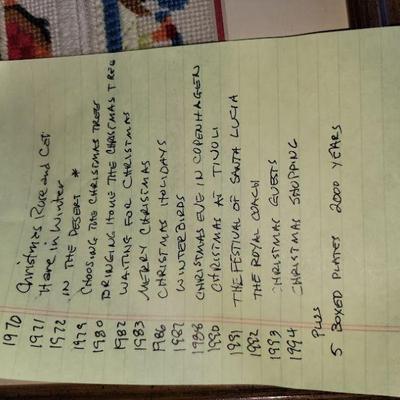 1970 Christmas Rose and Cat
1971 Hare in Winter
1972 IN THE DESERT *
1979 CHOOSING THE CHRISTMAS TREE
1980 BRINGING HOME THE CHRISTMAS TREE
1982 WAITING FOR CHRISTMAS
1983 MERRY CHRISTMAS
1986 CHRISTMAS HOLIDAYS
1987 WINTERBIRDS
1988 CHRISTMAS EVE IN COPENHAGEN
1990 CHRISTMAS AT TIVOLI
1991 THE FESTIVAL OF SANTA LUCIA
1992 THE ROYAL COACH
1993 CHRISTMAS GUESTS
1994 CHRISTMAS SHOPPING
PLUS
5 BOXED PLATES 2000 YEARS